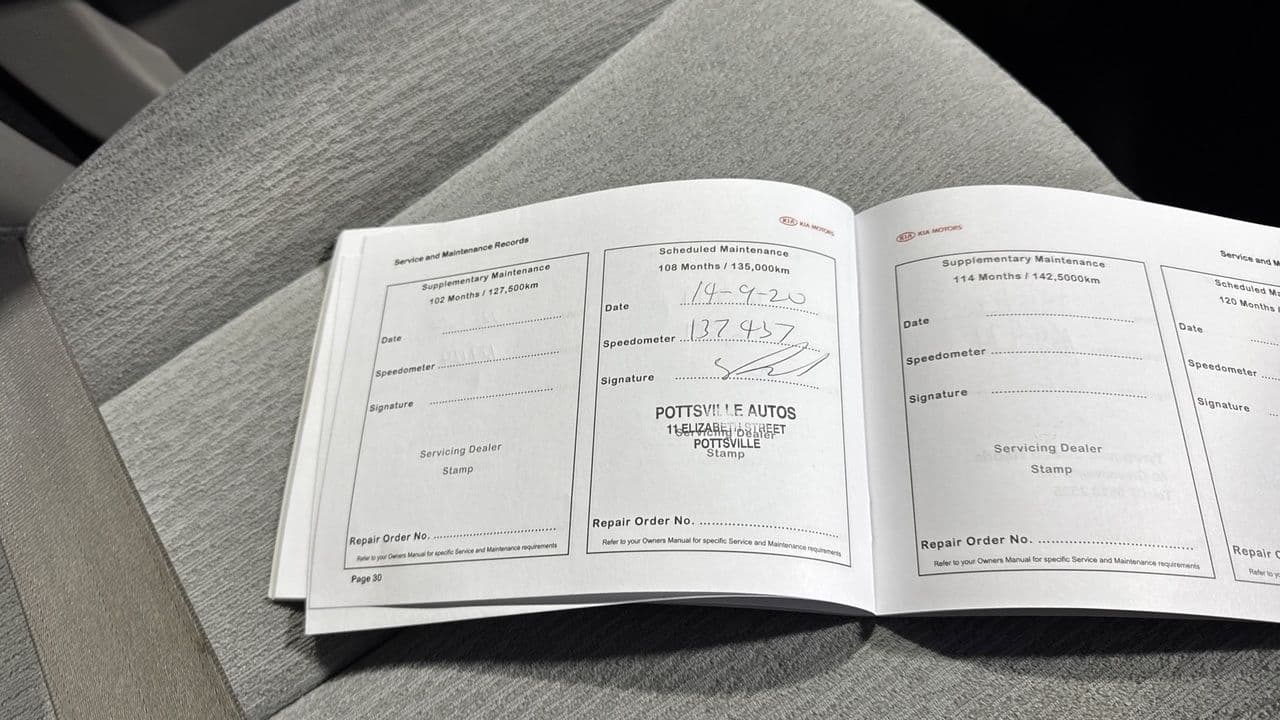 Service and Maintenance Records
KIA KIA MOTORS
Supplementary Maintenance
102 Months / 127,500km
Date
Speedometer
Signature
Servicing Dealer
Stamp
Repair Order No.
Refer to your Owners Manual for specific Service and Maintenance requirements
Page 30
Scheduled Maintenance
108 Months / 135,000km
Date 14-9-20
Speedometer 137 437
Signature
POTTSVILLE AUTOS
11 ELIZABETH STREET
Servicing Dealer
POTTSVILLE
Stamp
Repair Order No.
Refer to your Owners Manual for specific Service and Maintenance requirements
KIA KIA MOTORS
Supplementary Maintenance
114 Months / 142,5000km
Date
Speedometer
Signature
Servicing Dealer
Stamp
Repair Order No.
Refer to your Owners Manual for specific Service and Maintenance requirements
Service and M
Scheduled Ma
120 Months
Date
Speedometer
Signature
Repair
Refer to